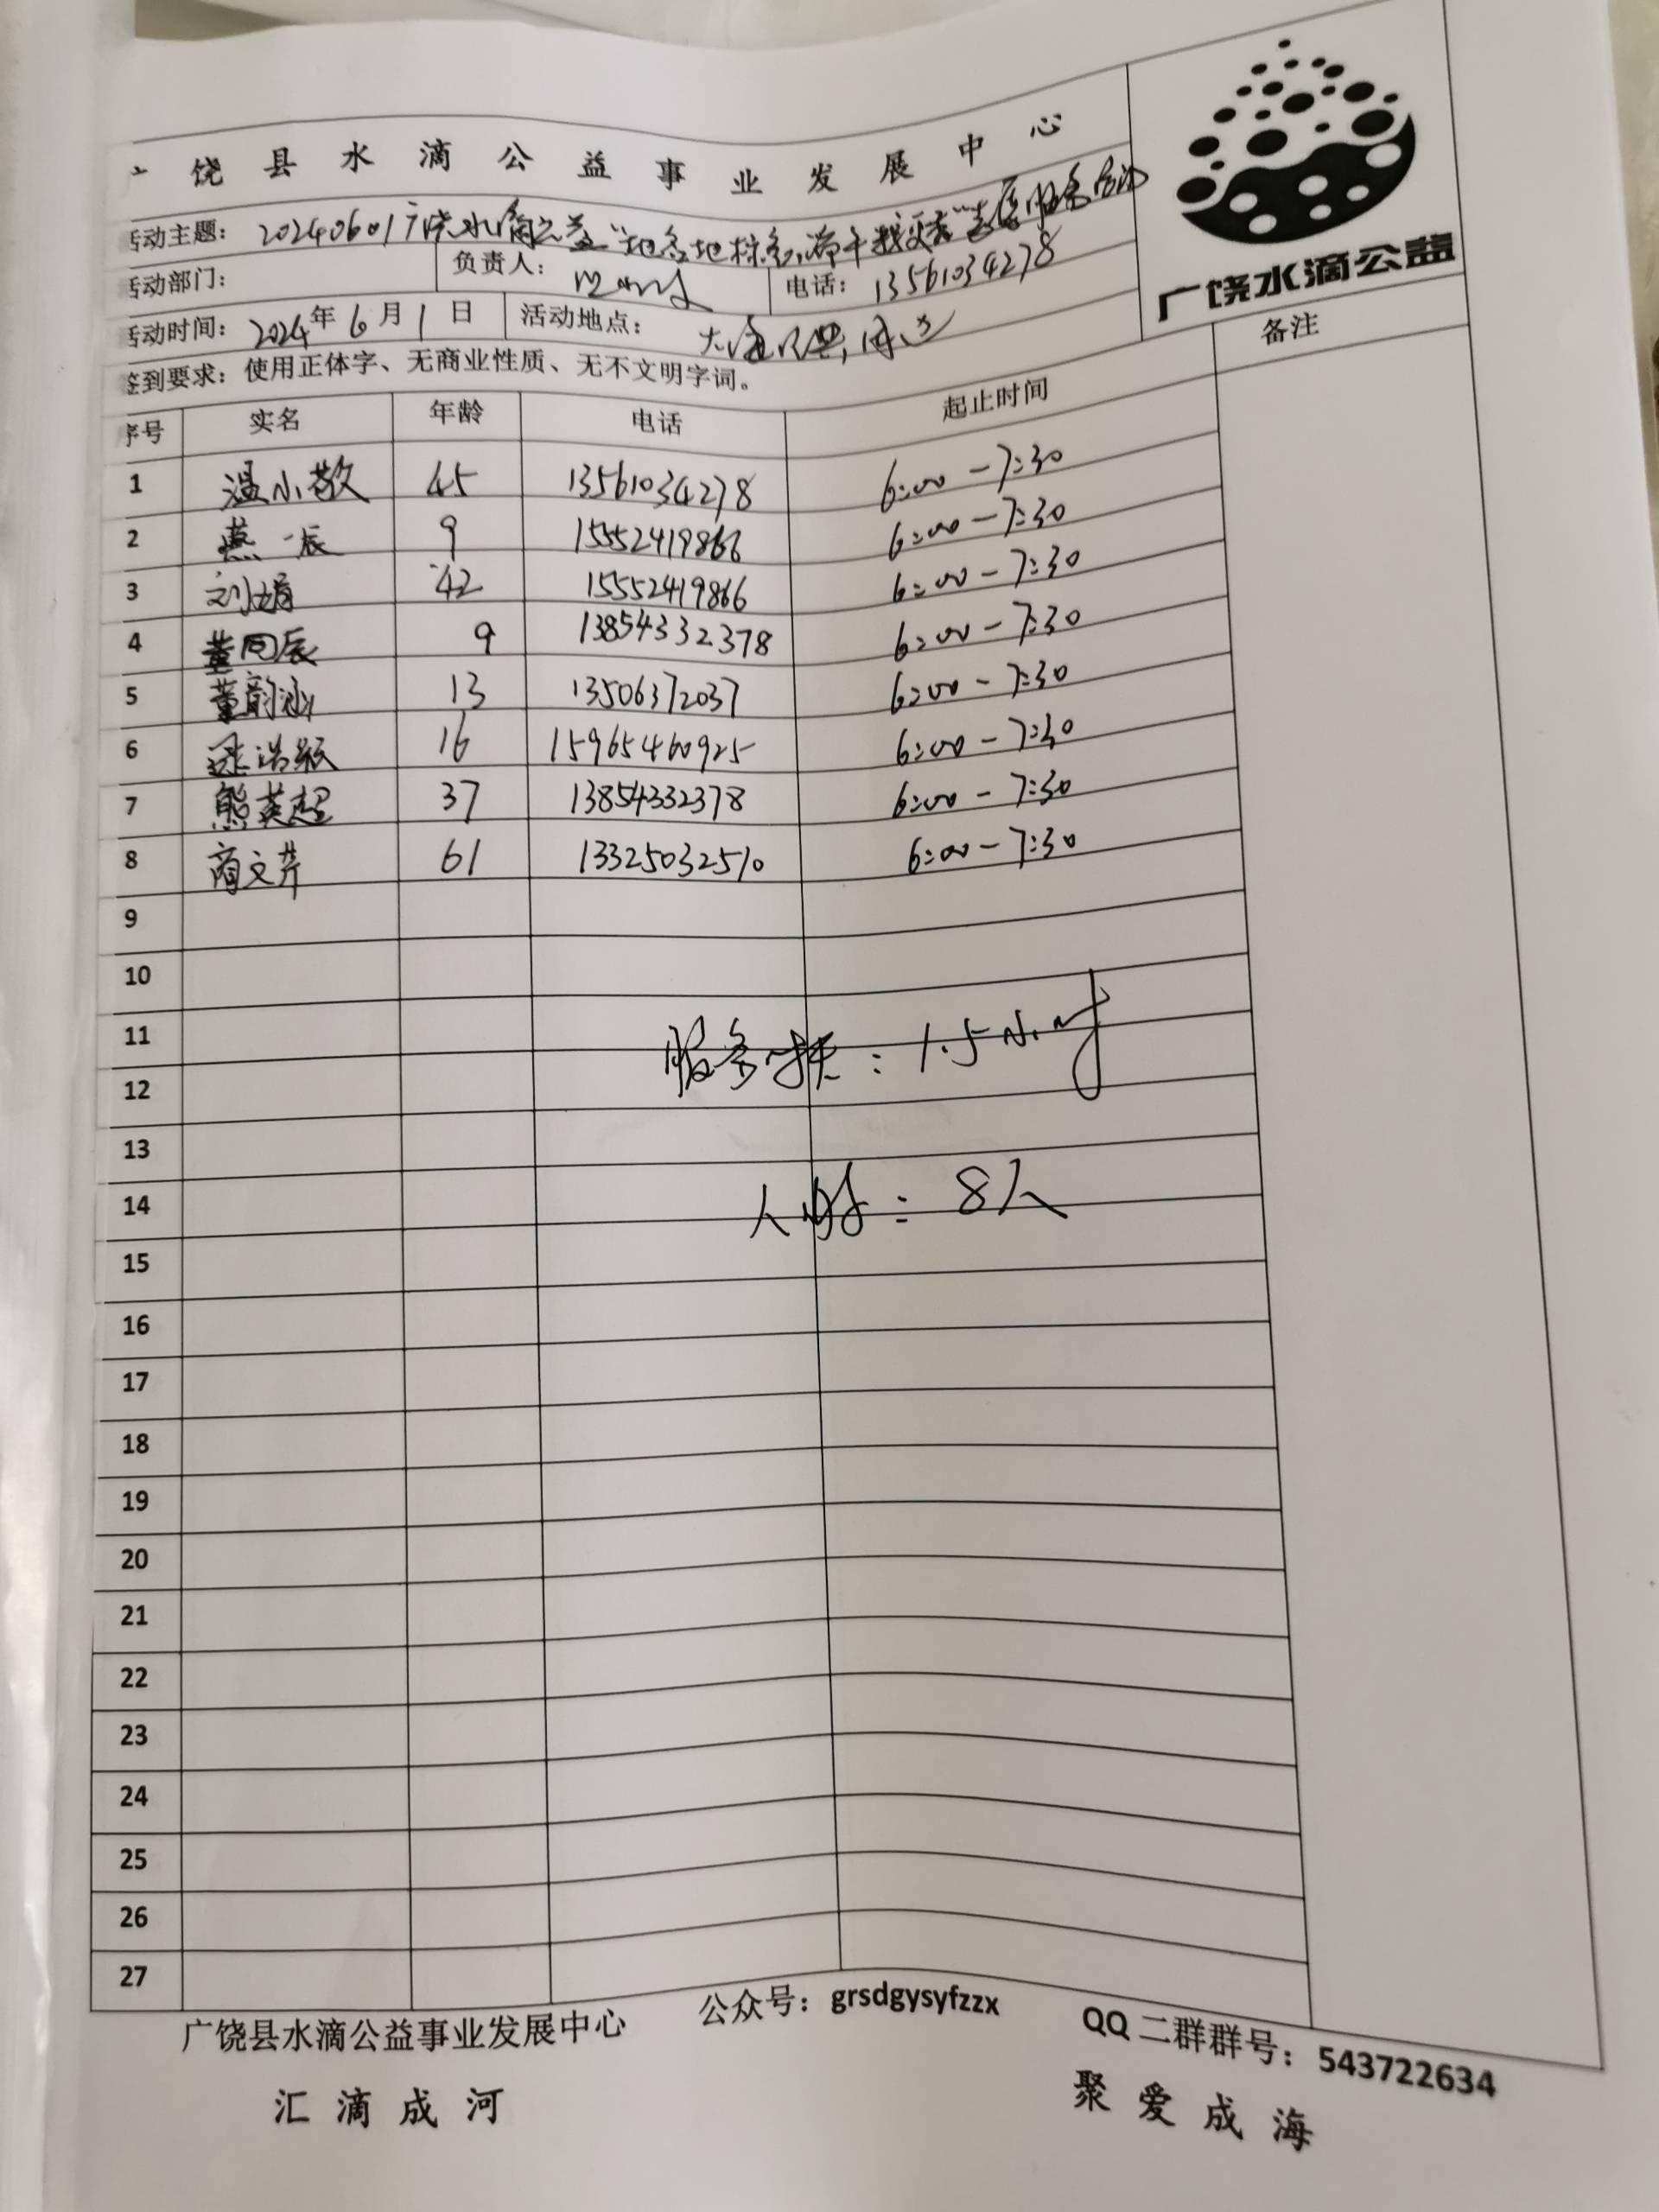 广饶县水滴公益事业发展中心
广饶水滴公益
活动主题: 20240601广饶水滴公益"地名地标
活动部门: 负责人: 电话: 13561034278
活动时间: 2024年6月1日 活动地点:
签到要求: 使用正体字、无商业性质、无不文明字词。
序号 实名 年龄 电话 起止时间 备注
1 温小敬 45 13561034278 6:00-7:30
2 燕一辰 9 15552419866 6:00-7:30
3 刘娟 42 15552419866 6:00-7:30
4 董同辰 9 13854332378 6:00-7:30
5 董韵涵 13 13506372037 6:00-7:30
6 16 15965460925 6:00-7:30
7 熊英超 37 13854332378 6:00-7:30
8 商文芹 61 13325032510 6:00-7:30
9
10
11
服务时长: 1.5小时
12
13
14
人数: 8人
15
16
17
18
19
20
21
22
23
24
25
26
27
广饶县水滴公益事业发展中心 公众号: grsdgysyfzzx QQ二群群号: 543722634
汇滴成河 聚爱成海